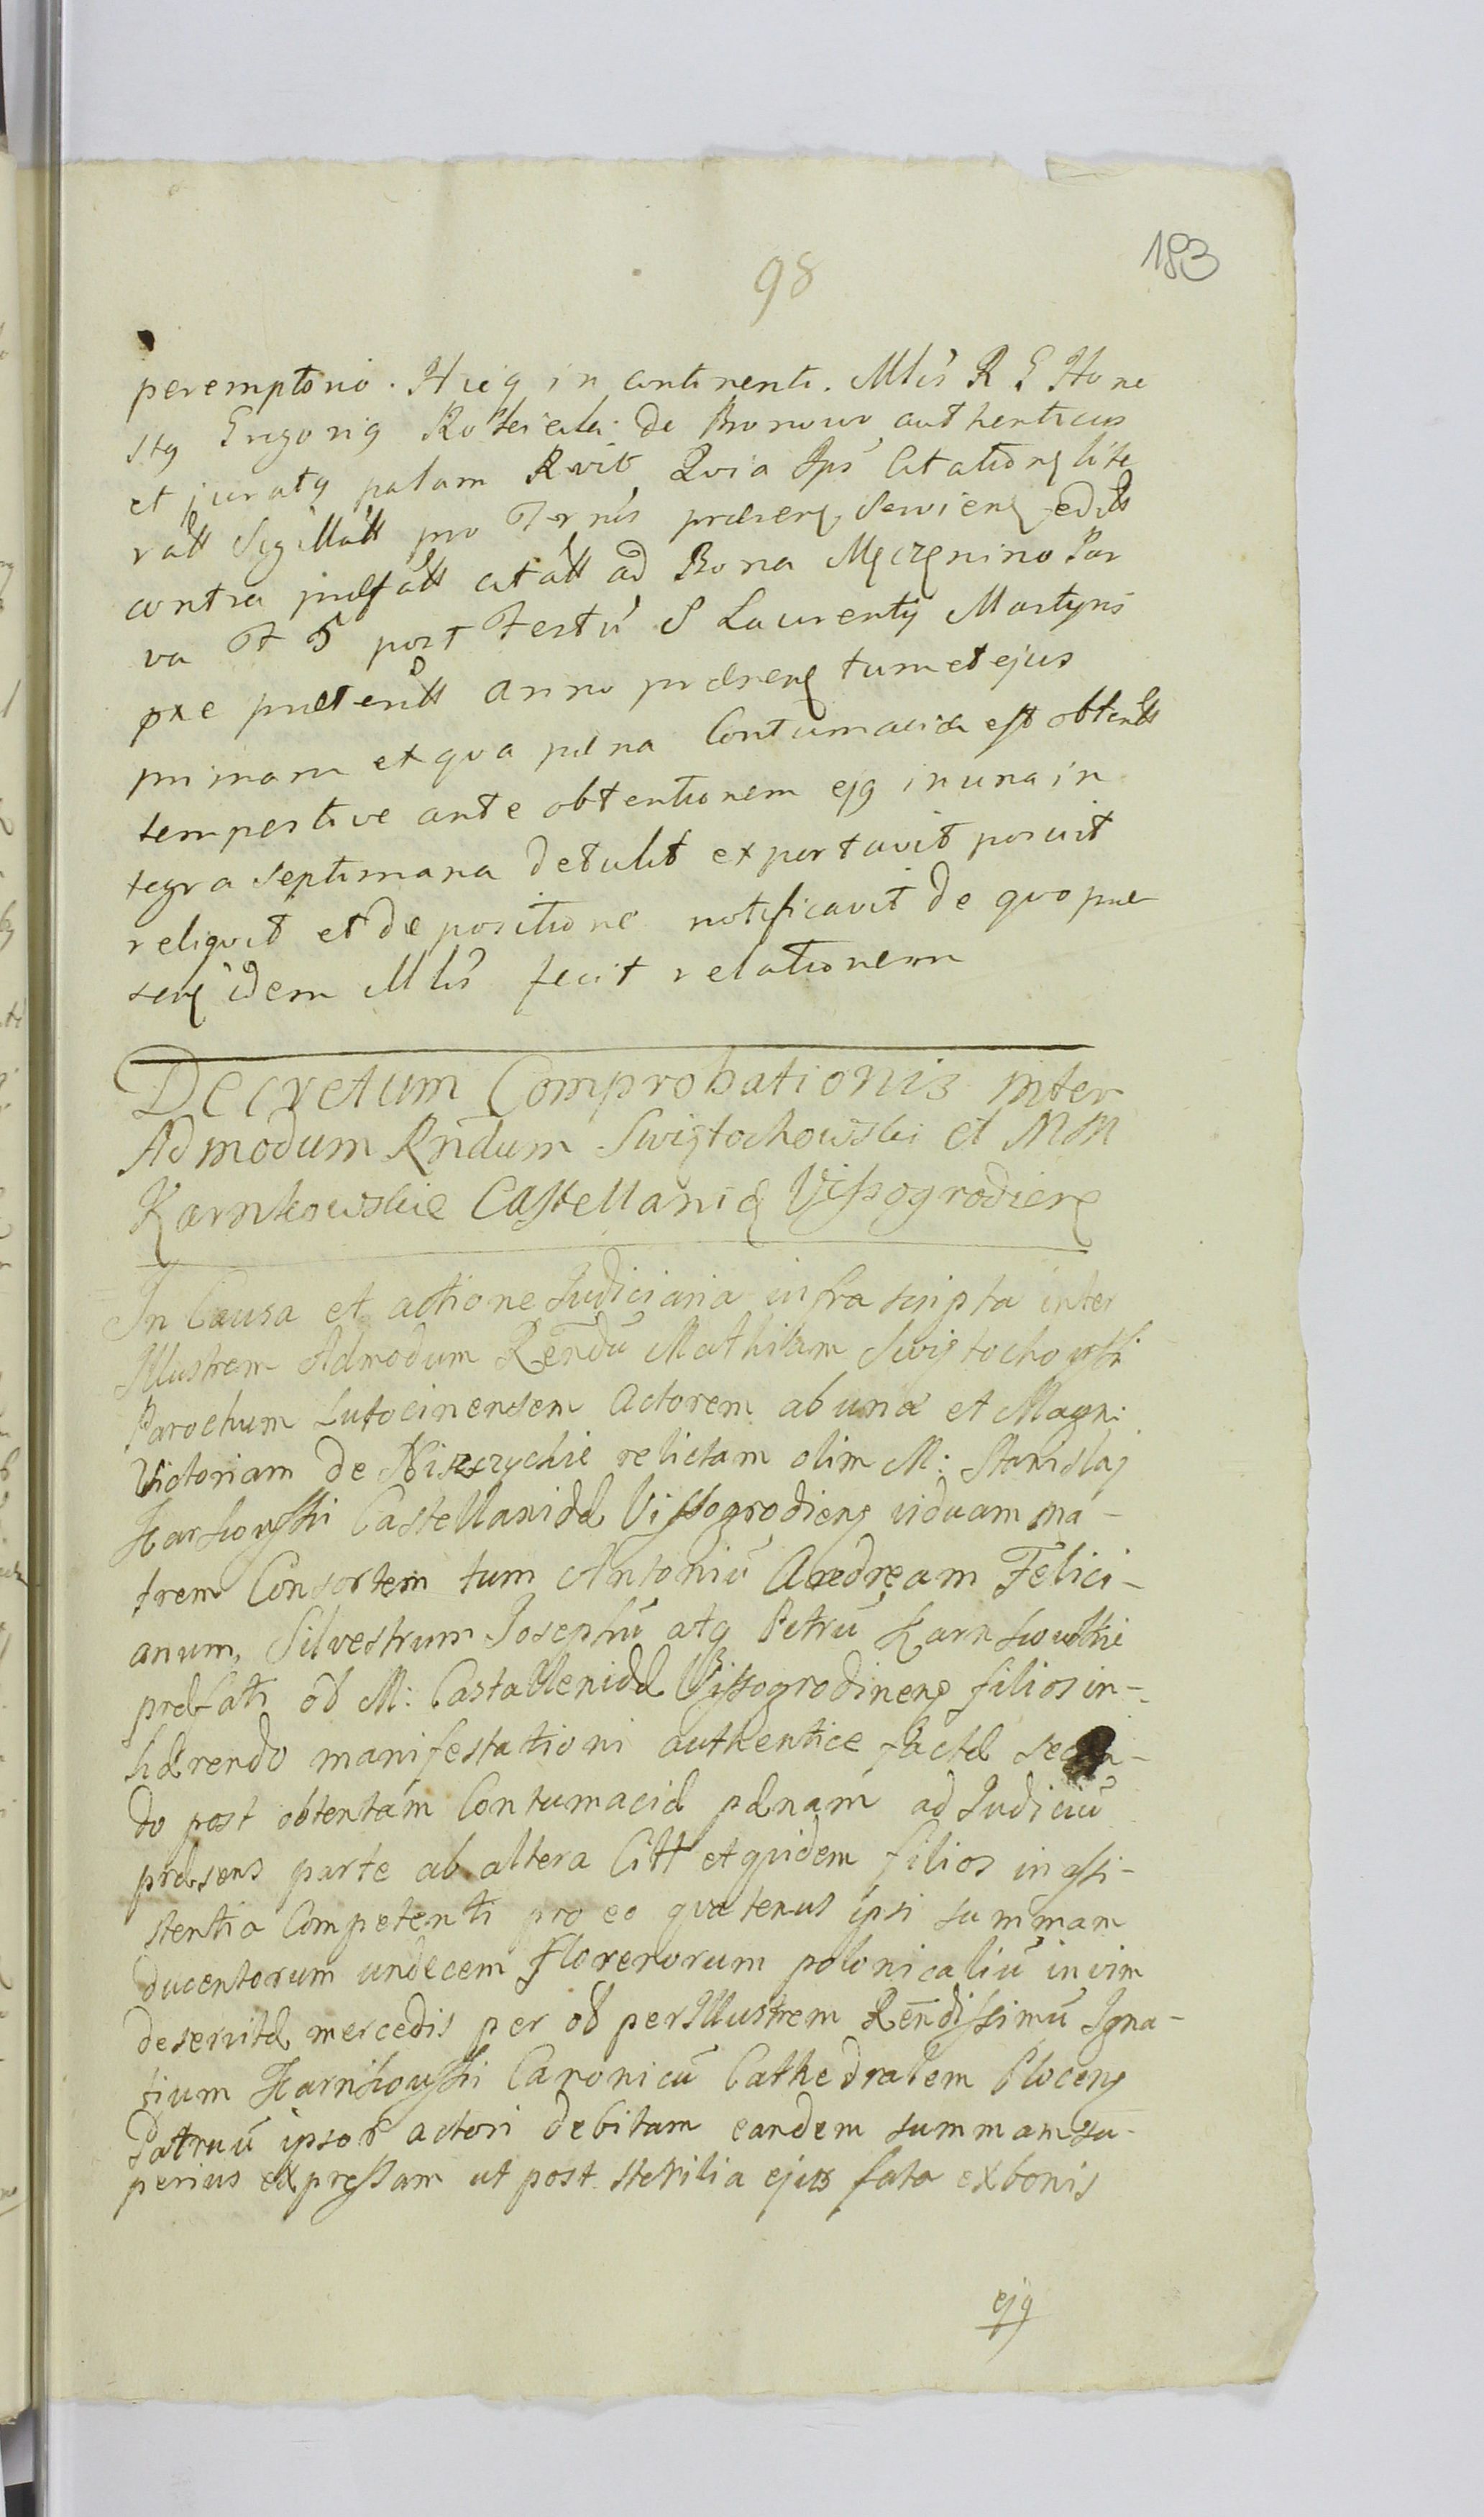 98
183
peremptorio. Hicq in continenti. Mlis R G Hone
stq Gregoriq de Bronowo authenticus
et juratq palam Rvit Qvia Ips Citationę lite
ratt Sigillatt pro Trnis præsenę Servienę editt
contra præfatt citatt ad Bona Męczęnino Par
va F 5 post Festu S Laurentij Martyris
pxe præteritt anno præsenę tum et ejus
primam et qva pæna Contumaciæ est obtentt
tempestive ante obtentionem ejq in una in
tegra Septimana detulit exportavit posuit
reliqvit et de positione notificavit de qvo præ
senę idem Mlis fecit relationem
Decretum Comprobationis inter
Admodum Rndum Swiętochowski et MM
Karnkowskie Castellanię Vissogrodienę
In Causa et actione Judiciaria infra scripta inter
Illustrem Admodum Rendu Mathiam Swiętochowski
Parochum Lutocinensem Actorem ab una et Magn:
Victoriam de Niszczyckie relictam olim M: Stanislaj
Karnkowski Castellanidæ Vissogrodienę viduam ma-
trem Consortem tum Antoniu Andręam Felici-
anum, Silvestrum Josephu atq Petru Karnkowskie
præfati ol M: Castellanidæ Vissogrodinenę filios in-
hærendo manifestationi authentice factæ secun-
do post obtentam Contumaciæ pænam ad Judiciu
præsens parte ab altera Citt et qvidem filios in assi-
stentia Competenti pro eo qvatenus ipsi summam
ducentorum undecem Florenorum polonicaliu in vim
deservitæ mercedis per ol perIllustrem Rendissimu Igna-
tium Karnkowski Canonicu Cathedralem Plocenę
Patruu ipsor actori debitam eandem summam su-
perius expressam ut post sterilia ejus fata ex bonis
ejq